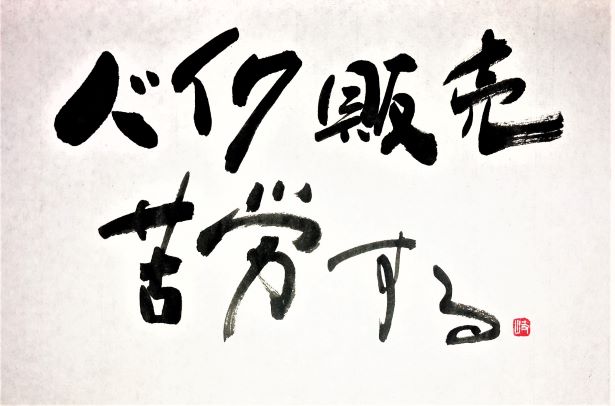 バイク販売
苦労する